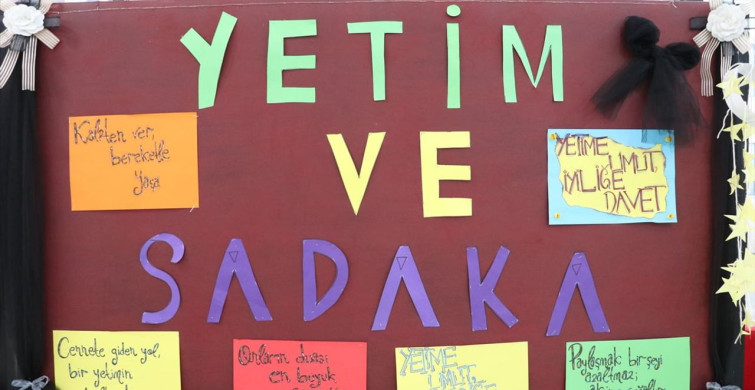 YETİM
VE
SADAKA
Kalpten ver,
bereketle
yaşa
YETİME
UMUT,
İYİLİĞE
DAVET
Cennete giden yol,
bir yetimin
Onların duası
en büyük
YETİME
UMUT,
İYİLİĞE
Paylaşmak birşeyi
azaltmaz;